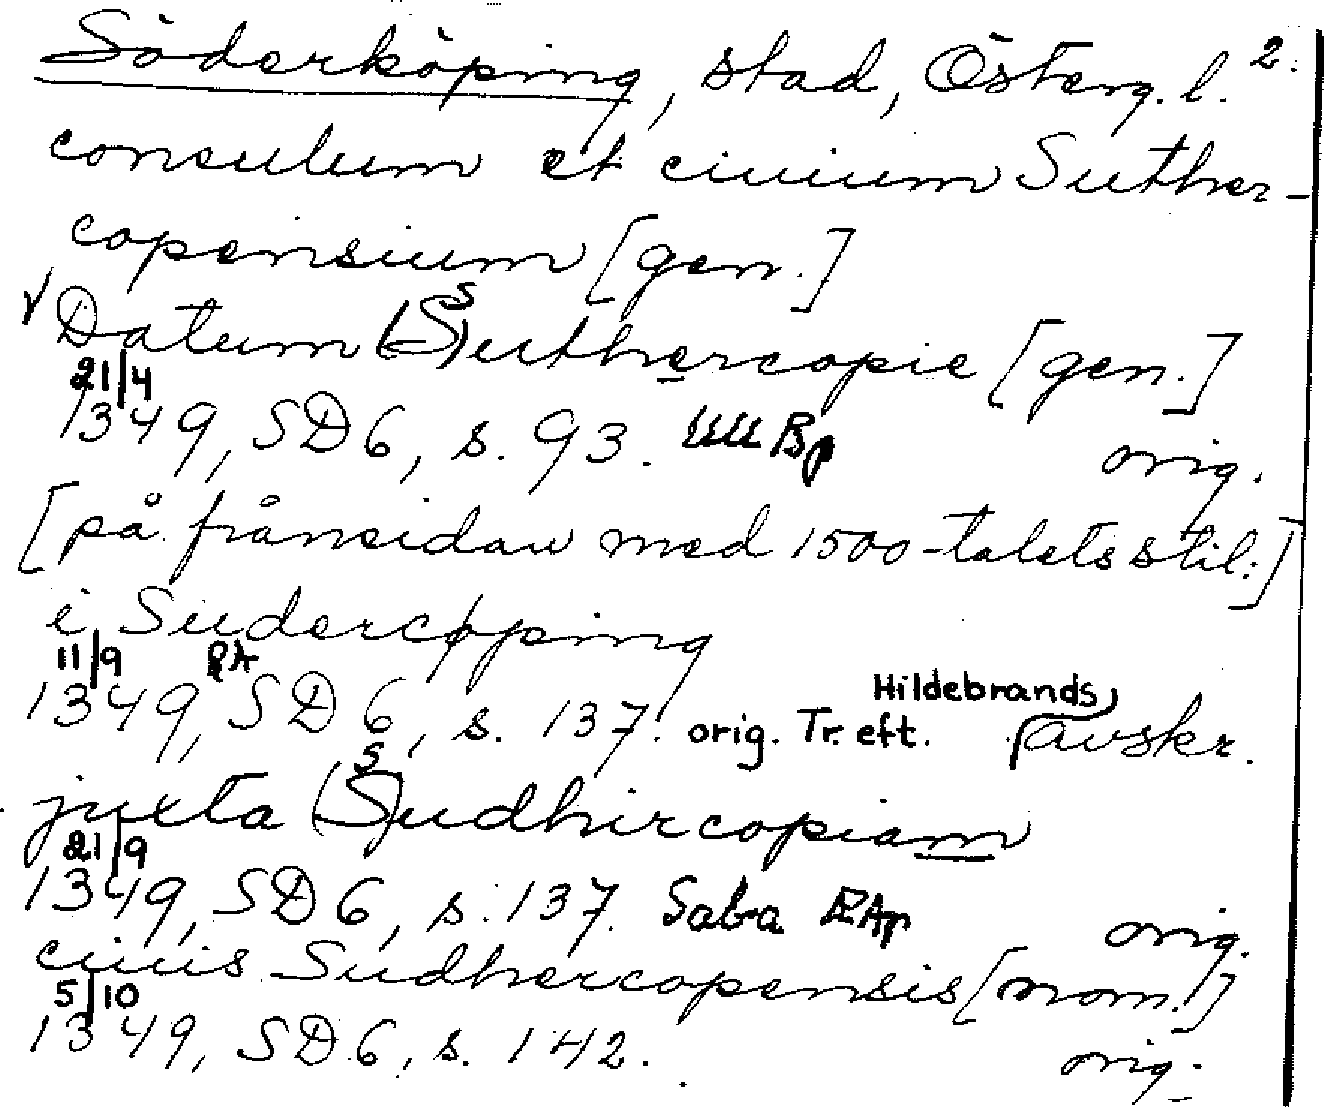 Söderköping, stad, Österg. l. 2.
consulum et ciuium Suther-
copensium [gen.]
Datum (S)suthercopie [gen.]
21/4
1349, SD 6, s. 93. orig.
[på frånsidan med 1500-talets stil:]
i Sudercøping
11/9
1349, SD 6, s. 137. orig. Tr. eft. Hildebrands avskr.
juxta (S)sudhircopiam
21/9
1349, SD 6, s. 137. Saba RAp orig.
ciuis Sudhercopensis [nom.]
5/10
1349, SD 6, s. 142. orig.